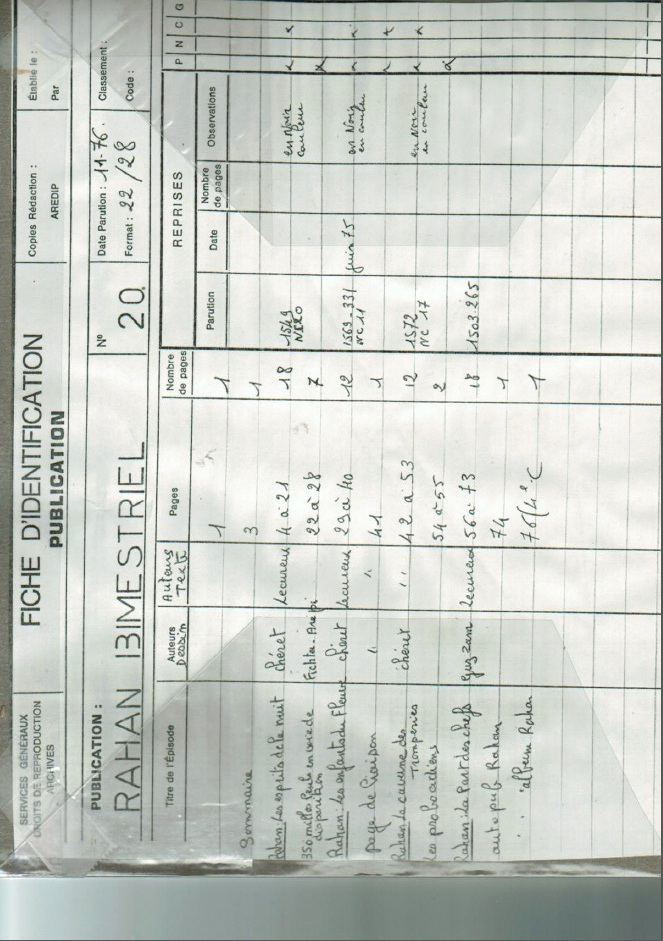 SERVICES GÉNÉRAUX
DROITS DE REPRODUCTION
ARCHIVES
FICHE D'IDENTIFICATION
PUBLICATION
Copies Rédaction :
AREDIP
Établie le :
Par
PUBLICATION :
RAHAN BIMESTRIEL
N°
20
Date Parution : 11-76.
Format : 22/28
Classement :
Code :
Titre de l'Épisode
Auteurs Dessin
Auteurs Texte
Pages
Nombre de pages
REPRISES
Parution
Date
Nombre de pages
Observations
P N C G
1 1
Sommaire 3 1
Rahan : Les esprits de la nuit Chéret Lecureux 4 à 21 18 1549 en Noir couleur x x
350 milles de
disparition 22 à 28 7 x
Rahan : Les enfants du Fleuve Chéret Lecureux 29 à 40 12 1569-331 NC 11 juin 75 en Noir en couleur x x
page de liaison " " 41 1 x x
Rahan La caverne des
Tromperies chéret " 42 à 53 12 1572 NC 17 en Noir en couleur x x
Les proboscidiens 54 à 55 2 x
Rahan : La Part des chefs Guy Zam Lecureux 56 à 73 18 1503-265
auto pub. Rahan 74 1
" " album Rahan 76/4° C 1